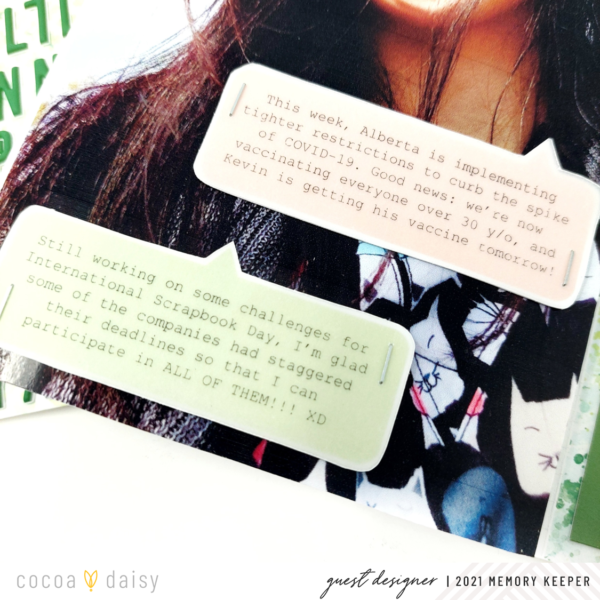 This week, Alberta is implementing
tighter restrictions to curb the spike
of COVID-19. Good news: we're now
vaccinating everyone over 30 y/o, and
Kevin is getting his vaccine tomorrow!
Still working on some challenges for
International Scrapbook Day, I'm glad
some of the companies had staggered
their deadlines so that I can
participate in ALL OF THEM!!! XD
cocoa daisy
guest designer | 2021 MEMORY KEEPER